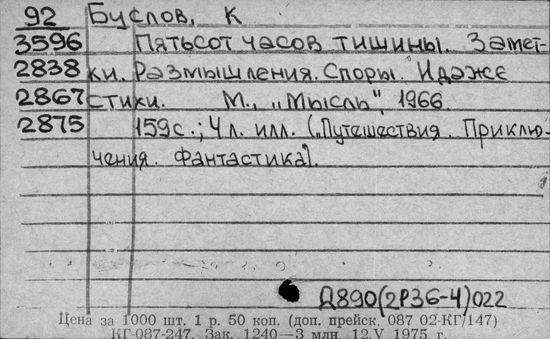 92 Буслов, К
3596 Пятьсот часов тишины. Замет-
2838 ки. Размышления. Споры. И даже
2867 стихи. М., „Мысль", 1966.
2875 159с.; 4 л. илл. („Путешествия. Приклю-
чения. Фантастика").
Д890(2Р36-4)022
Цена за 1000 шт. 1 р. 50 коп. (доп. прейск. 087 02-КГ/147)
КГ-087-247. Зак. 1240—3 млн. 12.V 1975 г.